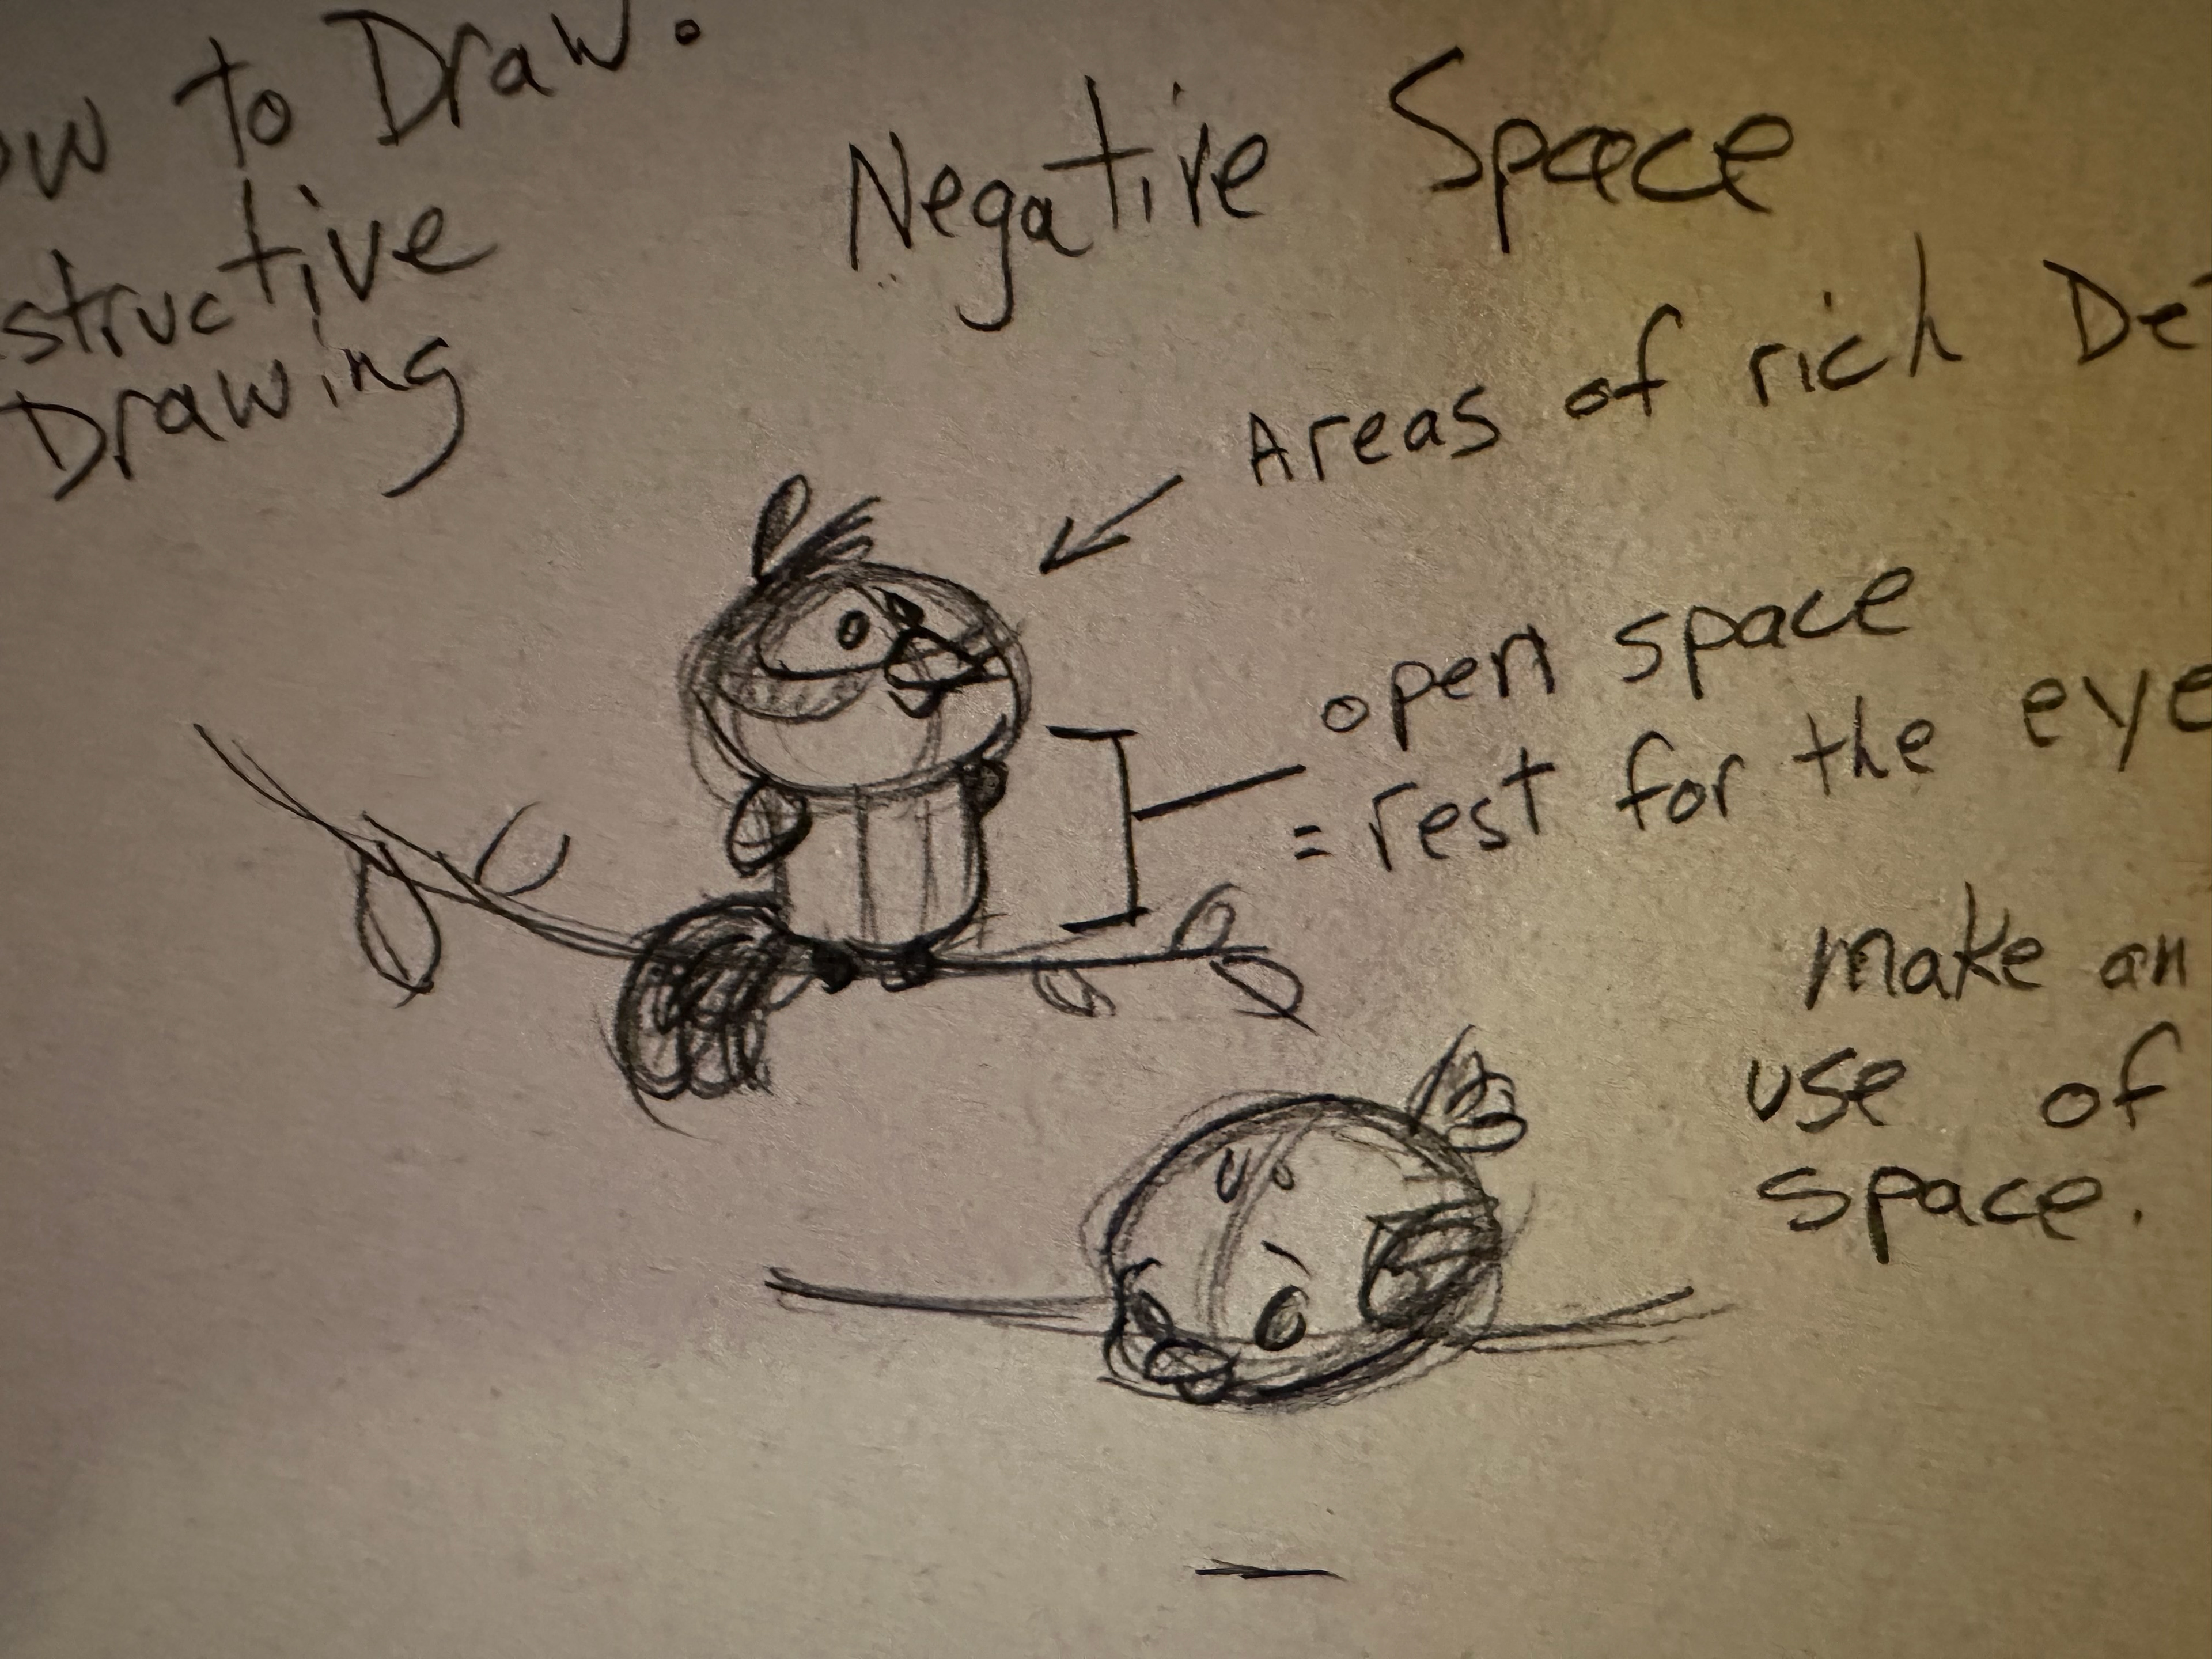 ow to Draw.
structive
Drawing
Negative Space
Areas of rich De
open space
= rest for the eye
make an
use of
space.